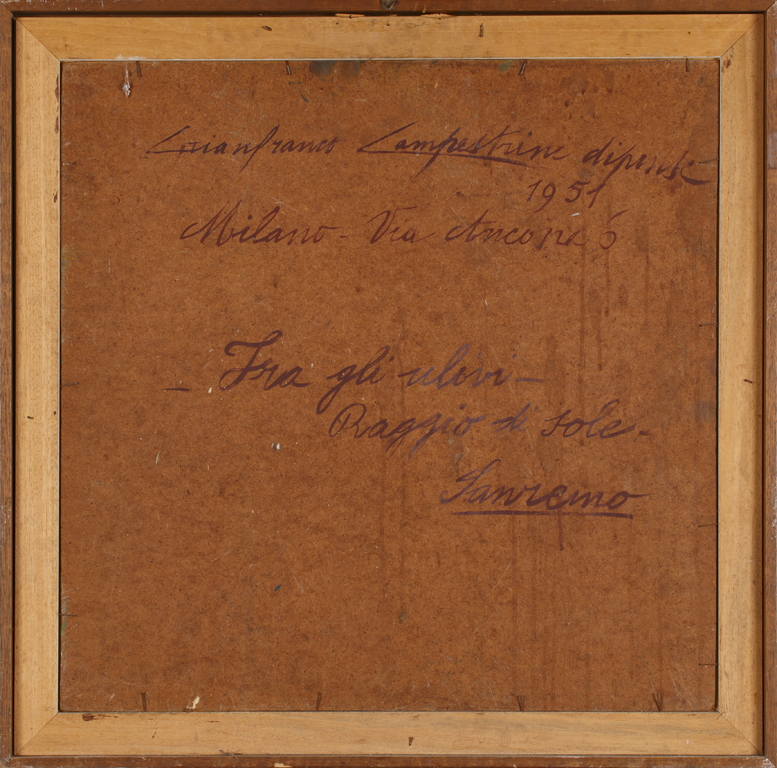 Gianfranco Campestrini dipinse
1951
Milano - Via Ancona 6
- Fra gli ulivi -
Raggio di sole -
Sanremo